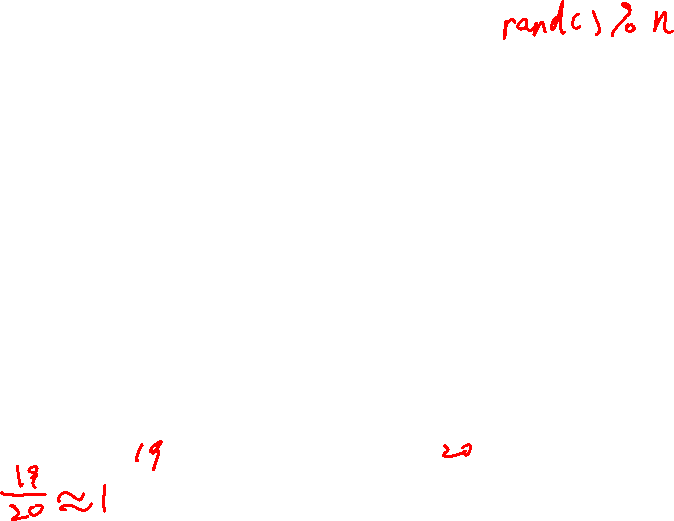 rand() % n
19 20
19/20 ≈ 1